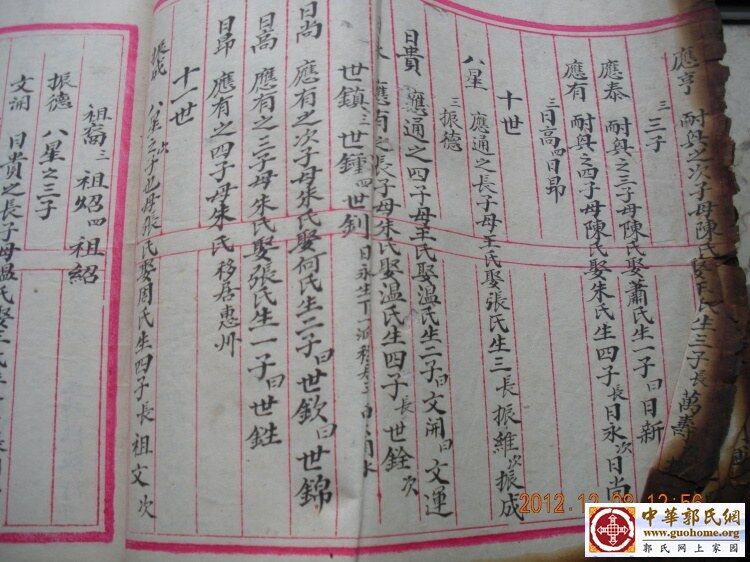 應亨 耐與之次子母陳氏娶 氏生三子長萬壽
三 三子
應泰 耐與之三子母陳氏娶蕭氏生一子曰日新
應有 耐與之四子母陳氏娶朱氏生四子長日永次日尚
三日高四日昴
十世
八星 應通之長子母王氏娶張氏生三長振維次振成
三振德
日貴 應通之四子母王氏娶温氏生二子曰文開曰文運
日永 應有之長子母朱氏娶温氏生四子長世銓次
世鎮三世鍾四世釗
日尚 應有之次子母朱氏娶何氏生二子曰世欽曰世錦
日高 應有之三子母朱氏娶張氏生一子曰世鉎
日昴 應有之四子母朱氏移居惠州
十一世
振成 八星之次子也母張氏娶周氏生四子長祖文次
祖裔三祖炤四祖紹
振德 八星之三子
文開 日貴之長子母温氏娶
2012.12.08 12:56
中華郭氏網
www.guohome.org
郭氏网上家园